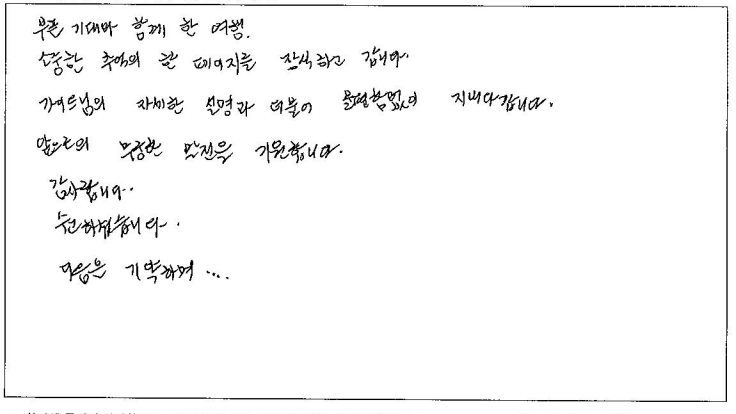 부푼 기대와 함께 한 여행.
소중한 추억의 한 페이지를 장식하고 갑니다.
가이드님의 자세한 설명과 더불어 불편함없이 지내다갑니다.
앞으로의 무궁한 발전을 기원합니다.
감사합니다.
수고하셨습니다.
다음을 기약하며 ....